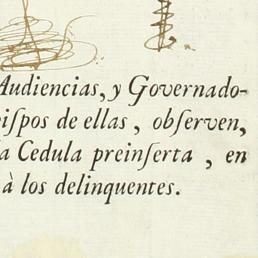 Audiencias, y Governado-
ispos de ellas, observen,
a Cedula preinserta, en
à los delinquentes.